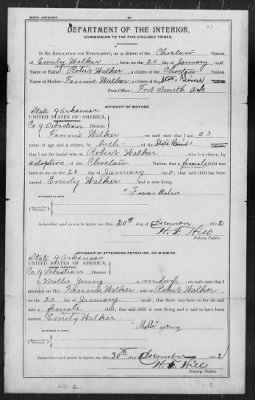 BIRTH AFFIDAVIT.
DEPARTMENT OF THE INTERIOR.
COMMISSION TO THE FIVE CIVILIZED TRIBES.
IN RE APPLICATION FOR ENROLLMENT, as a citizen of the Choctaw Nation, of
Emily Walker, born on the 20 day of January, 190
Name of Father: Robert Walker a citizen of the Choctaw Nation.
Name of Mother: Fannie Walker a citizen of the Nation.
Post-Office, Fort Smith Ark
AFFIDAVIT OF MOTHER.
State of Arkansas
UNITED STATES OF AMERICA,
Co of Sebastian
I, Fannie Walker, on oath state that I am 23
years of age and a citizen, by birth of the United States
that I am the lawful wife of Robert Walker, who is a citizen, by
adoption of the Choctaw Nation; that a female child was
born to me on the 20 day of January,
named Emily Walker, and is now living.
Fannie Walker
Subscribed and sworn to before me this 20th day of December, 1902
H. F. Hill
Notary Public.
AFFIDAVIT OF ATTENDING PHYSICIAN, OR MIDWIFE.
State of Arkansas
UNITED STATES OF AMERICA,
Co of Sebastian
I, Mollie Young, a midwife, on oath state that I
attended on Mrs. Fannie Walker, wife of Robert Walker
on the 20 day of January,
a female child; that said child is now living and is said to have been named
Emily Walker
Mollie Young
Subscribed and sworn to before me this 20th day of December, 1902
H. F. Hill
Notary Public.